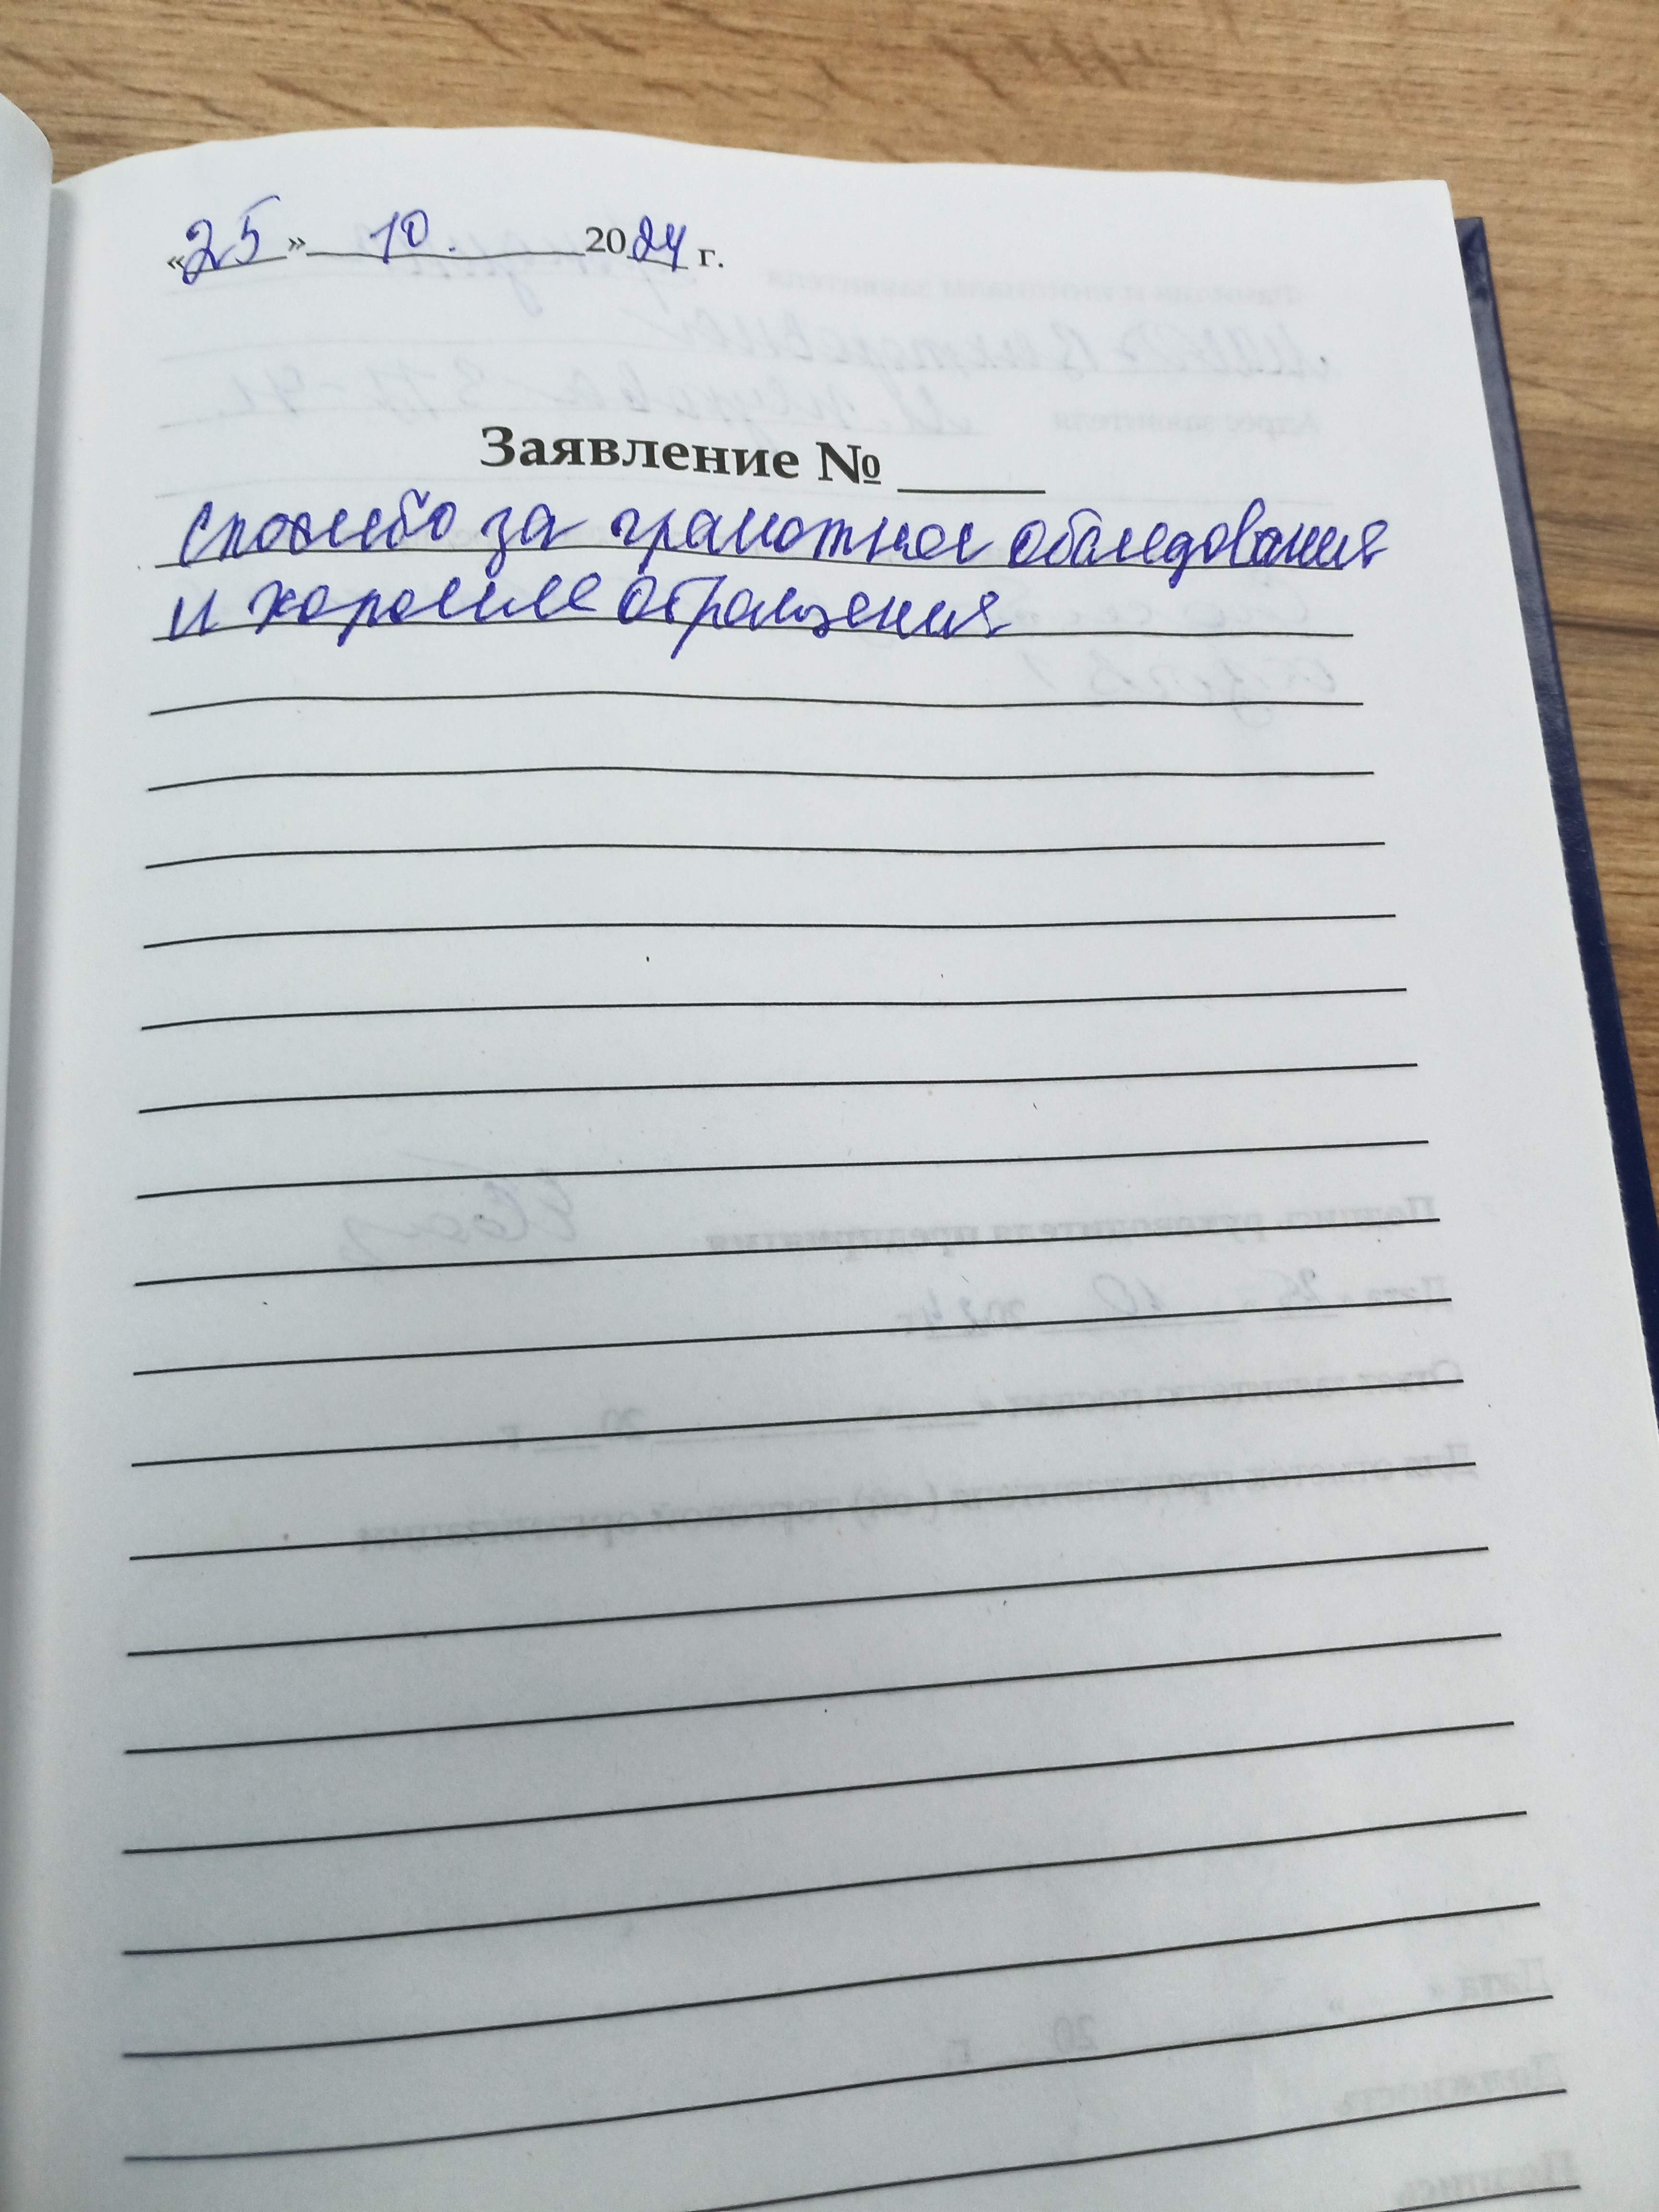 «25» 10. 2024 г.
Заявление № ____
спосибо за грамотное обследования
и хорошее обращения